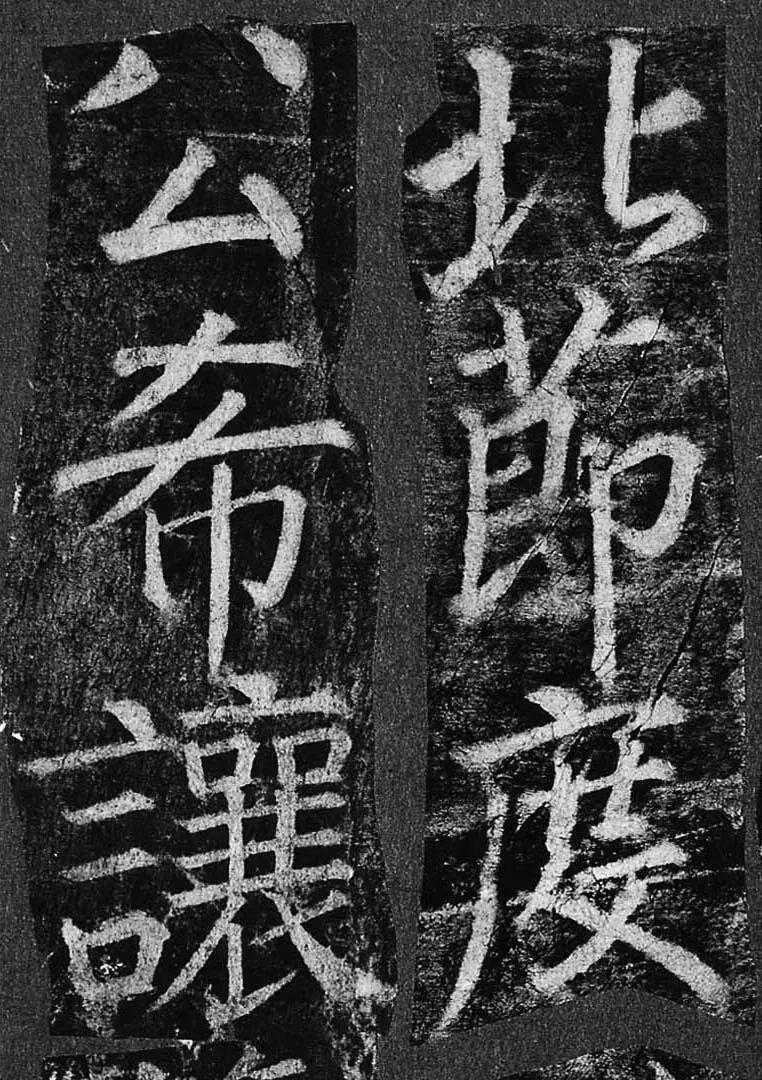 北節度
公希讓